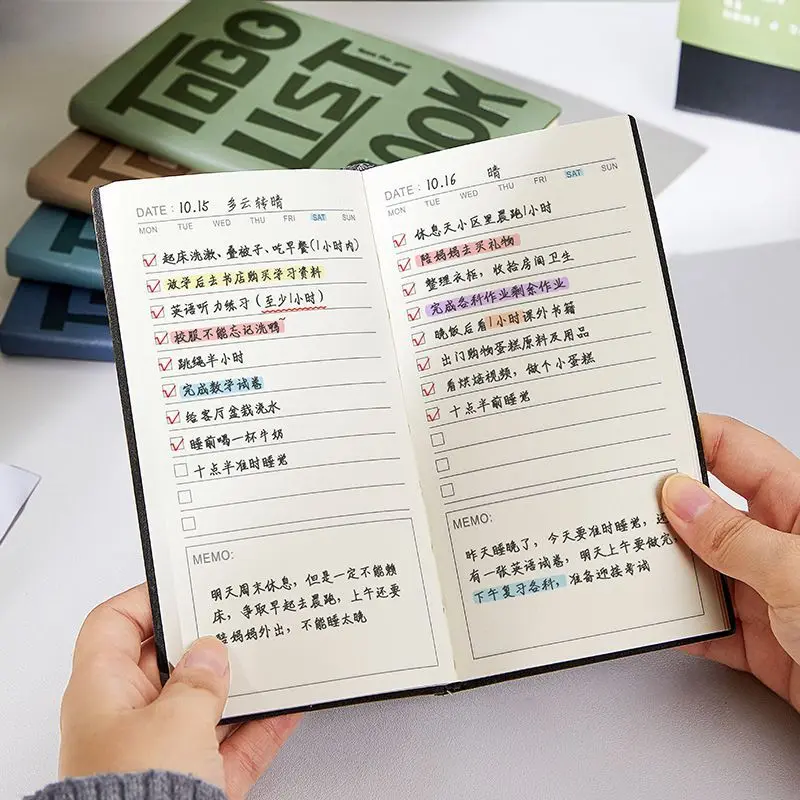 TODO
LIST
OOK
DATE: 10.15 多云转晴
MON TUE WED THU FRI SAT SUN
起床洗漱、叠被子、吃早餐(1小时内)
放学后去书店购买学习资料
英语听力练习(至少1小时)
校服不能忘记洗鸭~
跳绳半小时
完成数学试卷
给客厅盆栽浇水
睡前喝一杯牛奶
十点半准时睡觉
MEMO:
明天周末休息,但是一定不能赖
床,争取早起去晨跑,上午还要
陪妈妈外出,不能睡太晚
DATE: 10.16 晴
MON TUE WED THU FRI SAT SUN
休息天小区里晨跑1小时
陪妈妈去买礼物
整理衣柜,收拾房间卫生
完成各科作业剩余作业
晚饭后看1小时课外书籍
出门购物蛋糕原料及用品
看烘焙视频,做个小蛋糕
十点半前睡觉
MEMO:
昨天睡晚了,今天要准时睡觉,还
有一张英语试卷,明天上午要做完,
下午复习各科,准备迎接考试